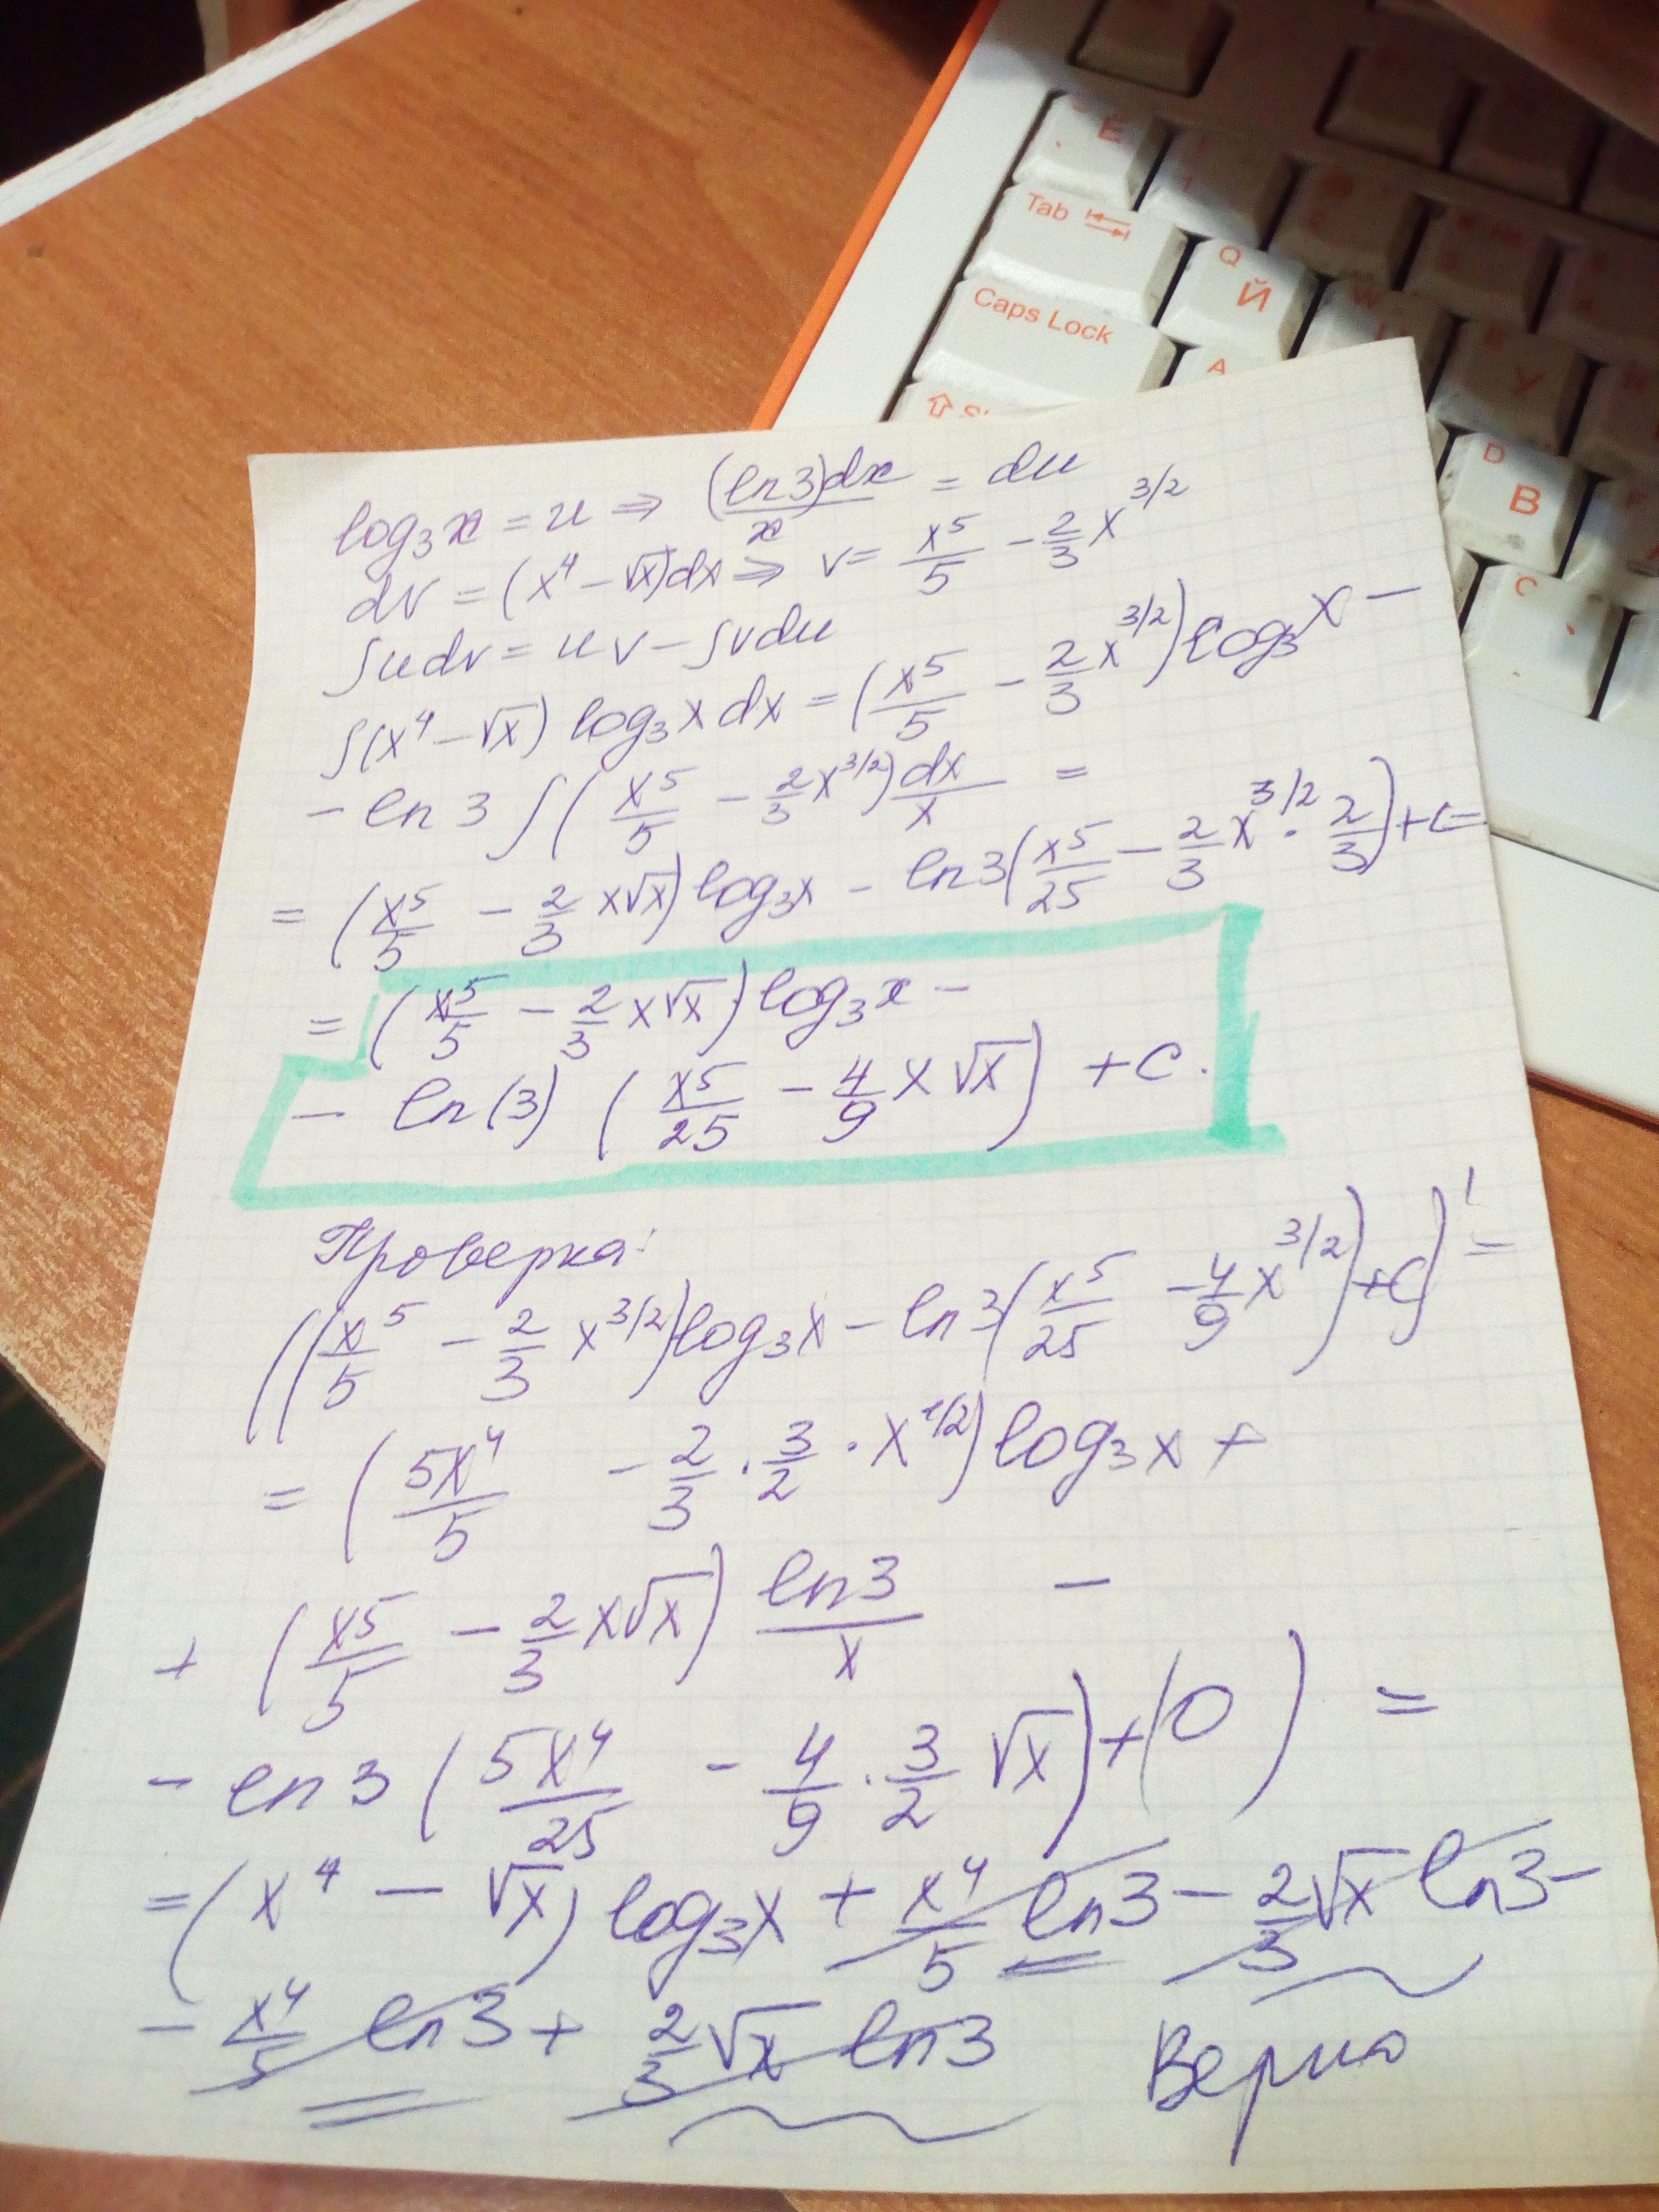 E
1
Tab
Q
Й
Caps Lock
A
D
В
C
log₃x = u ⇒ (ln3)dx/x = du
dv = (x⁴ - √x)dx ⇒ v = x⁵/5 - 2/3 x^(3/2)
∫udv = uv - ∫vdu
∫(x⁴ - √x) log₃x dx = (x⁵/5 - 2/3 x^(3/2)) log₃x -
- ln 3 ∫(x⁵/5 - 2/3 x^(3/2)) dx/x =
= (x⁵/5 - 2/3 x√x) log₃x - ln3(x⁵/25 - 2/3 x^(3/2) · 2/3) + C =
= (x⁵/5 - 2/3 x√x) log₃x -
- ln(3) (x⁵/25 - 4/9 x√x) + C.
Проверка:
((x⁵/5 - 2/3 x^(3/2)) log₃x - ln3(x⁵/25 - 4/9 x^(3/2)) + C)' =
= (5x⁴/5 - 2/3 · 3/2 · x^(1/2)) log₃x +
+ (x⁵/5 - 2/3 x√x) ln3/x -
- ln3 (5x⁴/25 - 4/9 · 3/2 √x) + (0) =
= (x⁴ - √x) log₃x + x⁴/5 ln3 - 2/3 √x ln3 -
- x⁴/5 ln3 + 2/3 √x ln3 Верно